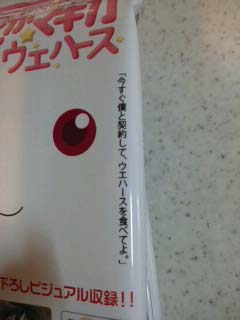 マギカ
ウエハース
「今すぐ僕と契約して、ウエハースを食べてよ。」
下ろしビジュアル収録!!